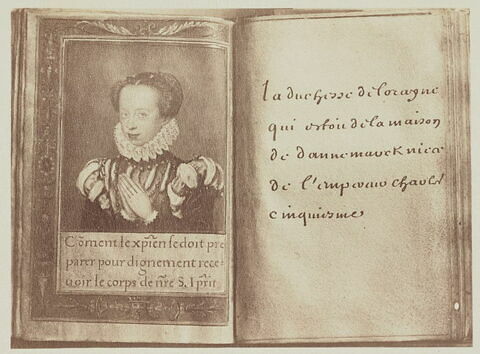 Cõment le xp̃ien se doit pre
parer pour dignement rece=
uoir le corps de nr̃e S. I
la duchesse de loraine
qui estoit de la maison
de dannemarck niece
de l'empereur charles
cinquiesme